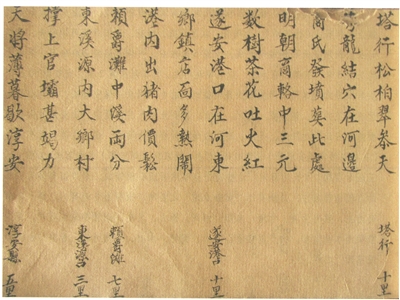 塔行松柏翠參天 塔行 十里
龍結穴在河邊
商氏發墳葬此處
明朝商輅中三元
數樹茶花吐火紅
遂安港口在河東 遂安港口 十里
鄉鎮店面多熱鬧
港內出猪肉價鬆
賴爵灘中溪兩分 賴爵灘 七里
東溪源內大鄉村 三里
撐上官壩甚竭力
天將薄暮歇淳安 淳安縣 五里